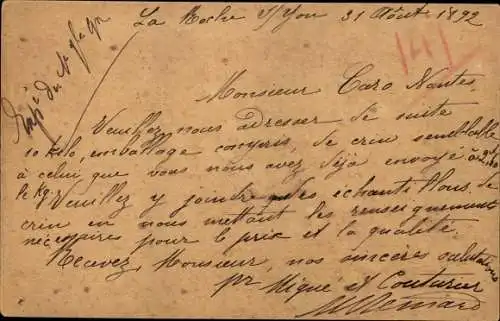 La Roche s/Yon 31 Août 1892
Expé du
141
Monsieur Caro Nantes,
Veuillez nous adresser de suite
10 kilo, emballage compris, de crin semblable
à celui que vous nous avez déjà envoyé à
le Kg. Veuillez y joindre des échantillons de
crin en nous mettant les renseignement
nécessaires pour le prix et la qualité.
Recevez, Monsieur, nos sincères salutations
pr Migué et Couturier